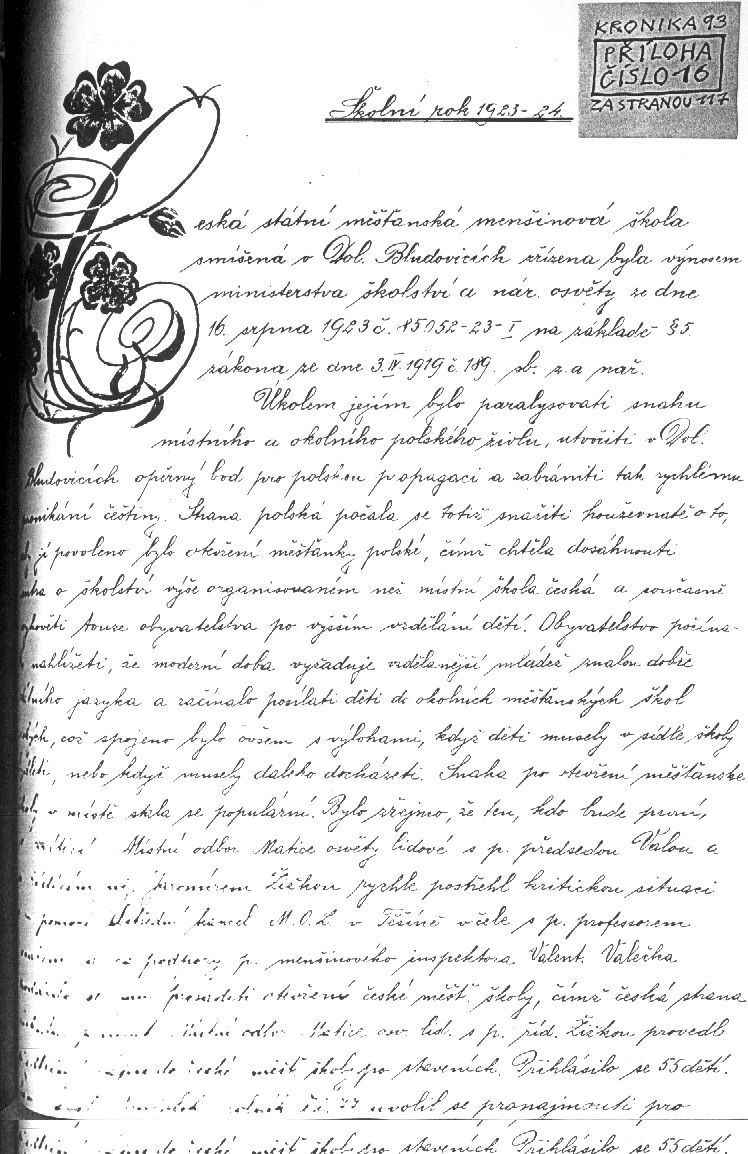 KRONIKA 93
PŘÍLOHA
ČÍSLO-16
ZA STRANOU 117
Školní rok 1923-24.
Česká státní měšťanská menšinová škola
smíšená v Dol. Bludovicích zřízena byla výnosem
ministerstva školství a nár. osvěty ze dne
16. srpna 1923 č. 85052-23-I na základě §5
zákona ze dne 3.IV.1919 č. 189. sb. z. a nař.
Úkolem jejím bylo paralysovati snahu
místního a okolního polského živlu, utvořiti v Dol.
Bludovicích opěrný bod pro polskou propagaci a zabrániti tak rychlému
pronikání češtiny. Strana polská počala se totiž snažiti houževnatě o to,
by jí povoleno bylo otevření měšťanky polské, čímž chtěla dosáhnouti
o školství výše organisovaném než místní škola česká a současně
touze obyvatelstva po vyšším vzdělání dětí. Obyvatelstvo počína-
nahlížeti, že moderní doba vyžaduje vzdělanější mládež znalou dobře
jazyka a začínalo posílati děti do okolních měšťanských škol
což spojeno bylo ovšem s výlohami, když děti musely v sídle školy
nebo když musely daleko docházeti. Snaha po otevření měšťanské
školy v místě stala se populární. Bylo zřejmo, že ten, kdo bude první,
Místní odbor Matice osvěty lidové s p. předsedou Valou a
Žižkou rychle postřehl kritickou situaci
pomocí M.O.L. v Těšíně v čele s p. professorem
a za podpory p. menšinového inspektora Valent. Valečka
se otevření české měšť. školy, čímž česká strana
Matice osv. lid. s p. říd. Žižkou provedl
do české měšť. školy po staveních. Přihlásilo se 55 dětí.
čís. 77 uvolil se pronajmouti pro
do české měšť. školy po staveních. Přihlásilo se 55 dětí.